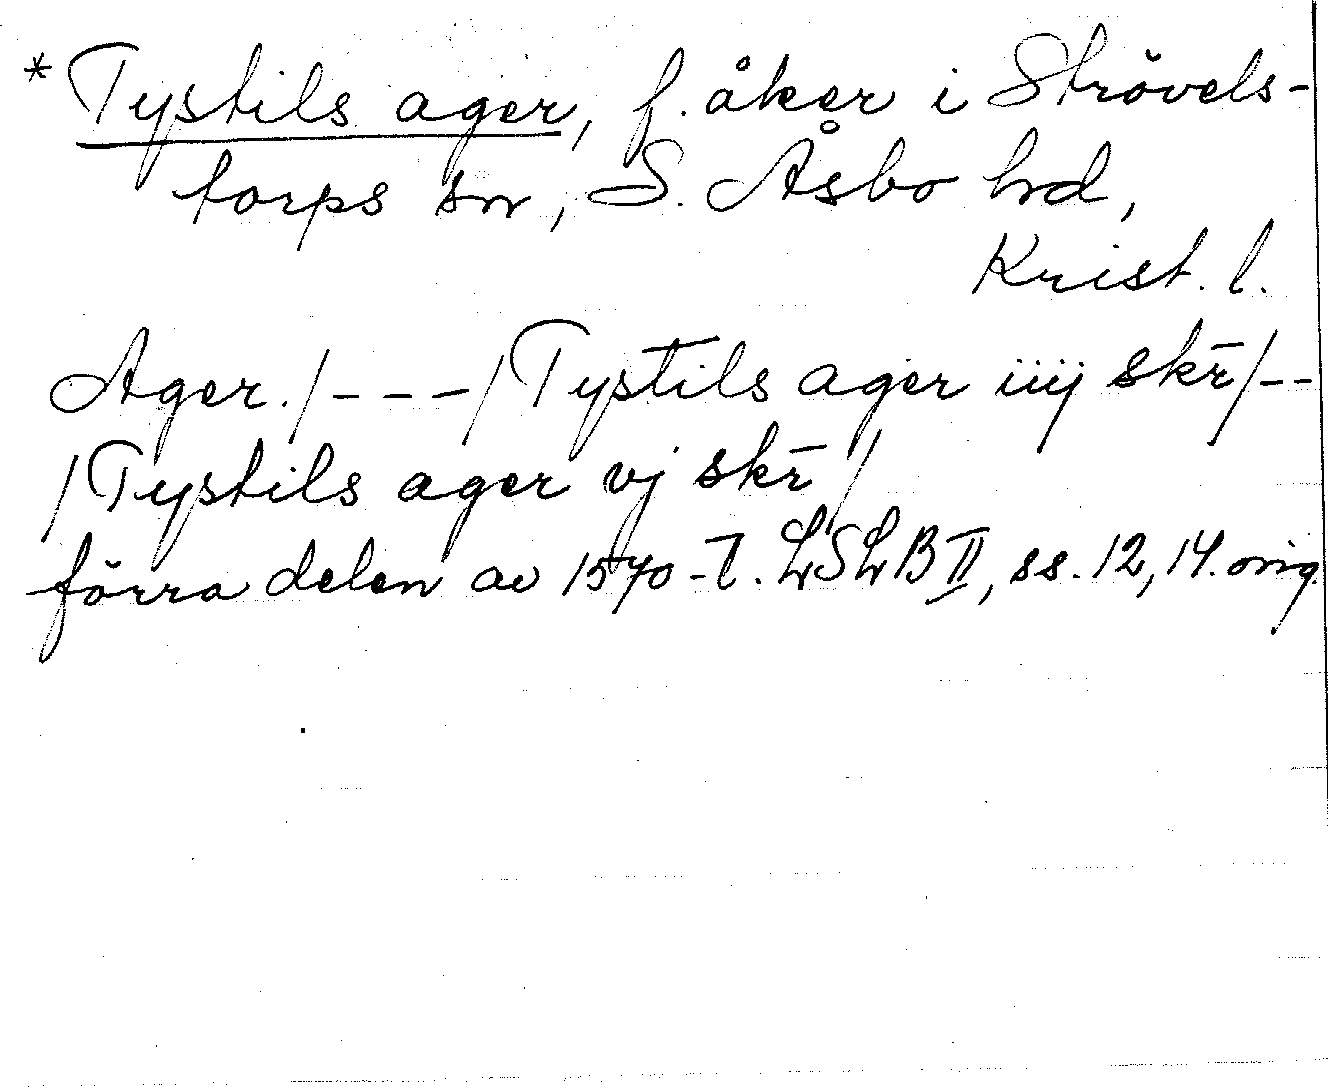 * Tystils ager, f. åker i Strövels-
torps sn, S. Åsbo hd,
Krist. l.
Ager./---/Tystils ager iiij skr̄/--
/Tystils ager vj skr̄/
förra delen av 1570-t. LSLB II, ss. 12, 14. orig.